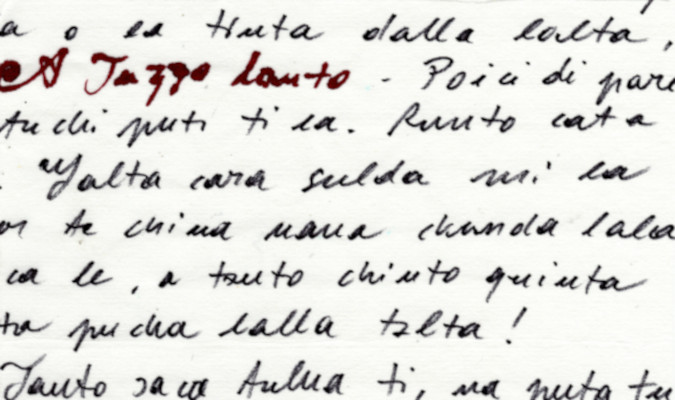 a o ea tinta dalla lalta,
A Jazzo lanto - Poici di pare
tuchi puti ti ea. Runto cata
"Yalta cara sulda mi ea
te china nana chunda lala
ca le, a tznto chinto quinta
ta pucha lalla tzlta!
Janto saca tulna ti, na puta tu